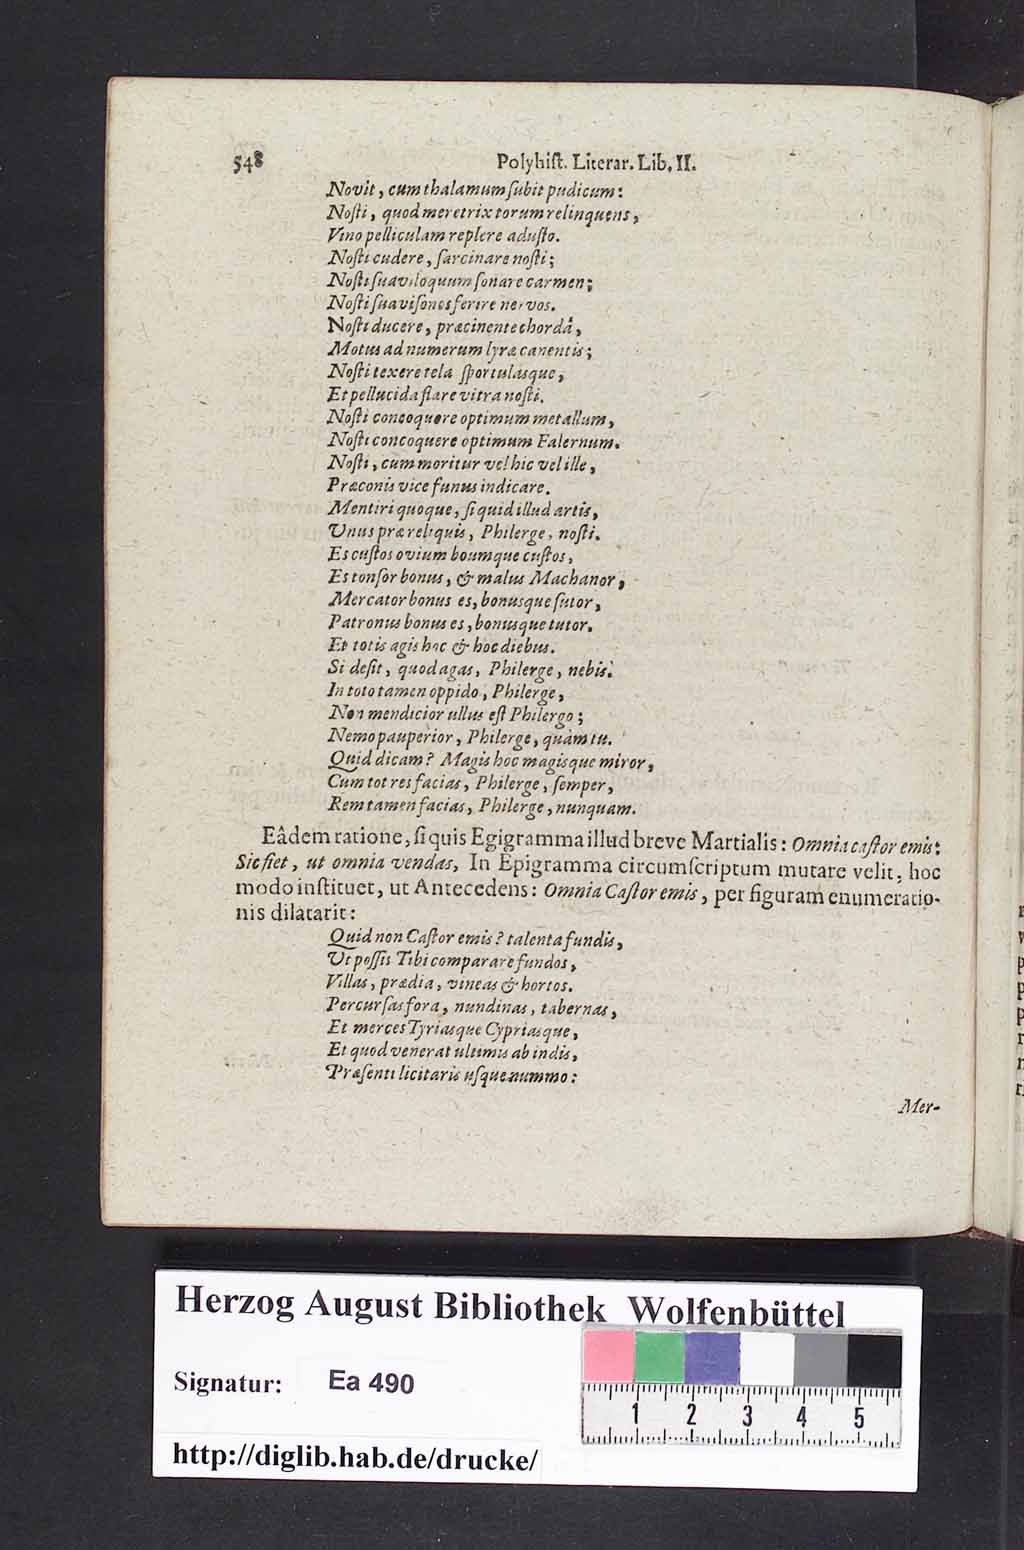 548 Polyhiſt. Literar. Lib. II.
Novit, cum thalamum ſubit pudicum:
Noſti, quod meretrix torum relinquens,
Vino pelliculam replere aduſto.
Noſti cudere, ſarcinare noſti;
Noſti ſuaviloquum ſonare carmen;
Noſti ſuaviſones ferire nervos.
Noſti ducere, præcinente chordâ,
Motus ad numerum lyræ canentis;
Noſti texere tela ſportulasque,
Et pellucida flare vitra noſti.
Noſti concoquere optimum metallum,
Noſti concoquere optimum Falernum.
Noſti, cum moritur vel hic vel ille,
Præconis vice funus indicare.
Mentiri quoque, ſi quid illud artis,
Unus præ reliquis, Philerge, noſti.
Es cuſtos ovium boumque cuſtos,
Es tonſor bonus, & malus Machanor,
Mercator bonus es, bonusque ſutor,
Patronus bonus es, bonusque tutor.
Et totis agis hoc & hoc diebus.
Si deſit, quod agas, Philerge, nobis.
In toto tamen oppido, Philerge,
Non mendicior ullus eſt Philergo;
Nemo pauperior, Philerge, quàm tu.
Quid dicam? Magis hoc magisque miror,
Cum tot res facias, Philerge, ſemper,
Rem tamen facias, Philerge, nunquam.
Eâdem ratione, ſi quis Egigramma illud breve Martialis: Omnia caſtor emis:
Sic fiet, ut omnia vendas, In Epigramma circumſcriptum mutare velit, hoc
modo inſtituet, ut Antecedens: Omnia Caſtor emis, per figuram enumeratio-
nis dilatarit:
Quid non Caſtor emis? talenta fundis,
Ut poſſis Tibi comparare fundos,
Villas, prædia, vineas & hortos.
Percurſas fora, nundinas, tabernas,
Et merces Tyriasque Cypriasque,
Et quod venerat ultimis ab indis,
Præſenti licitaris uſque nummo:
Mer-
Herzog August Bibliothek Wolfenbüttel
Signatur: Ea 490
http://diglib.hab.de/drucke/
1 2 3 4 5